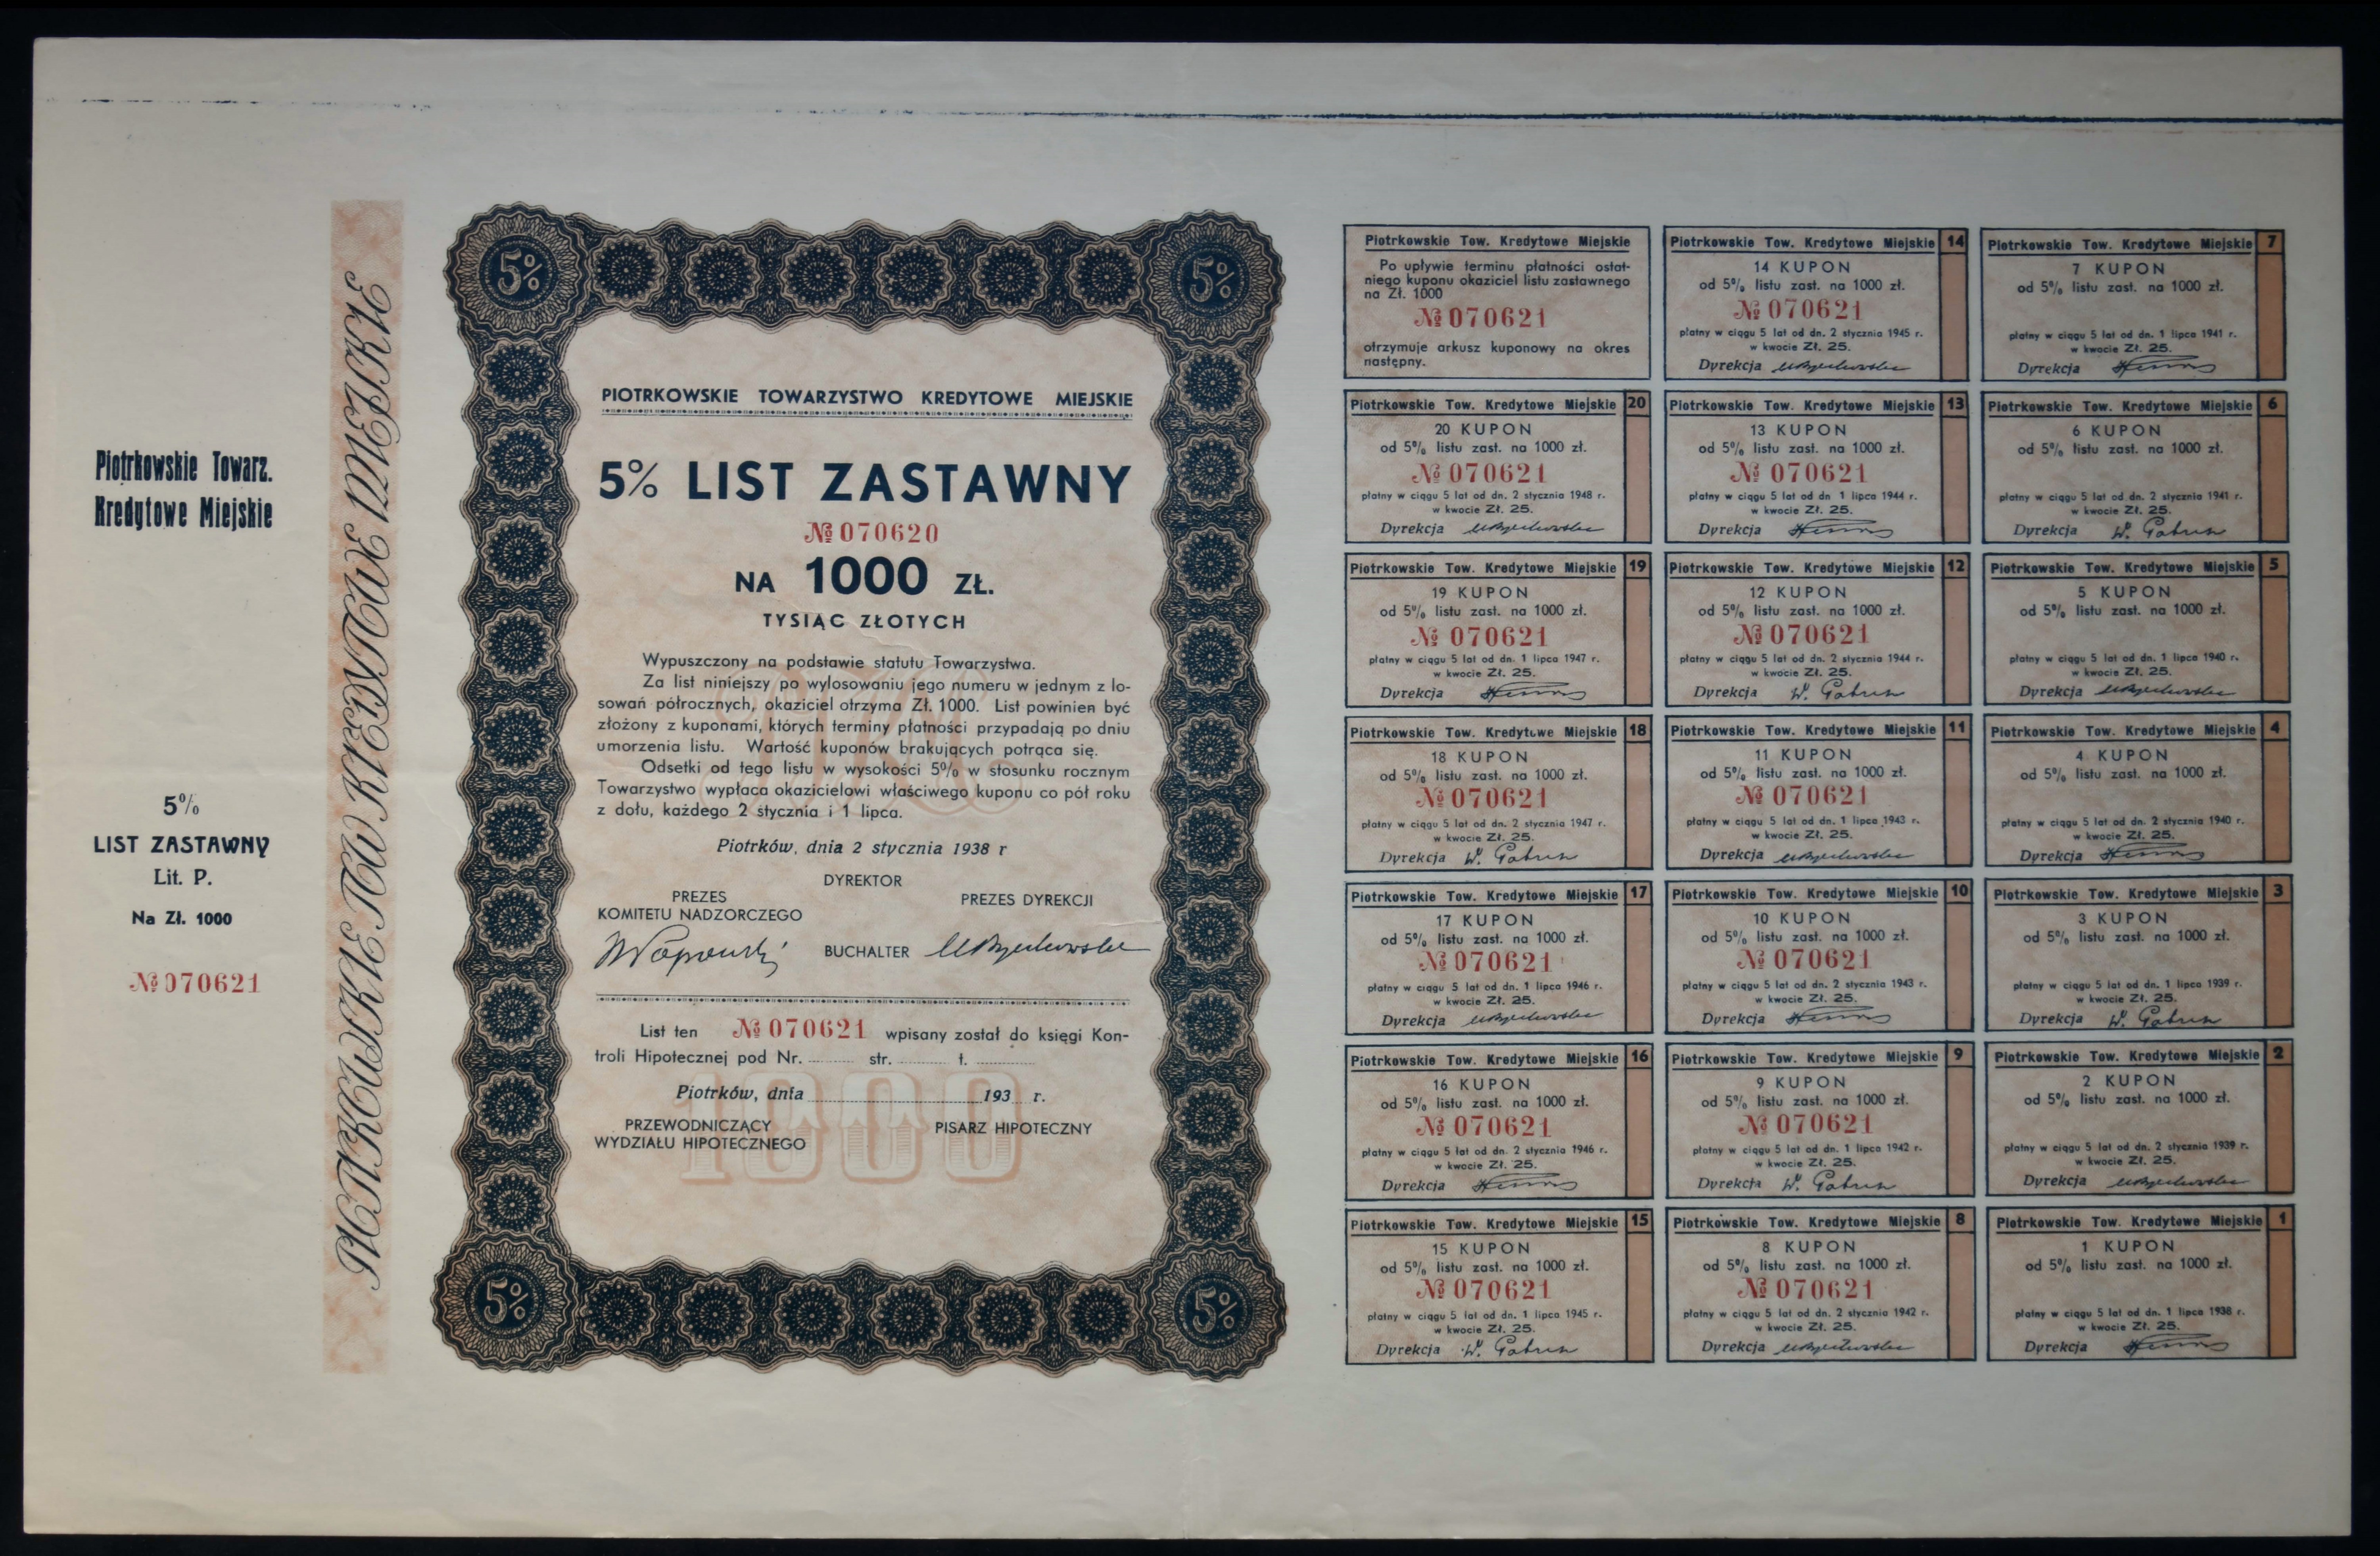 Piotrkowskie Towarz.
Kredytowe Miejskie
5%
LIST ZASTAWNY
Lit. P.
Na Zł. 1000
№ 070621
PIOTRKOWSKIE TOW. KREDYTOWE MIEJSKIE
5%
5%
PIOTRKOWSKIE TOWARZYSTWO KREDYTOWE MIEJSKIE
5% LIST ZASTAWNY
№ 070620
NA 1000 ZŁ.
TYSIĄC ZŁOTYCH
Wypuszczony na podstawie statutu Towarzystwa.
Za list niniejszy po wylosowaniu jego numeru w jednym z lo-
sowań półrocznych, okaziciel otrzyma Zł. 1000. List powinien być
złożony z kuponami, których terminy płatności przypadają po dniu
umorzenia listu. Wartość kuponów brakujących potrąca się.
Odsetki od tego listu w wysokości 5% w stosunku rocznym
Towarzystwo wypłaca okazicielowi właściwego kuponu co pół roku
z dołu, każdego 2 stycznia i 1 lipca.
Piotrków, dnia 2 stycznia 1938 r
DYREKTOR
PREZES
KOMITETU NADZORCZEGO
PREZES DYREKCJI
BUCHALTER
List ten № 070621 wpisany został do księgi Kon-
troli Hipotecznej pod Nr. str. t.
Piotrków, dnia 193 r.
1000
PRZEWODNICZĄCY
WYDZIAŁU HIPOTECZNEGO
PISARZ HIPOTECZNY
5%
5%
Piotrkowskie Tow. Kredytowe Miejskie
Po upływie terminu płatności ostat-
niego kuponu okaziciel listu zastawnego
na Zł. 1000
№ 070621
otrzymuje arkusz kuponowy na okres
następny.
Piotrkowskie Tow. Kredytowe Miejskie 20
20 KUPON
od 5% listu zast. na 1000 zł.
№ 070621
płatny w ciągu 5 lat od dn. 2 stycznia 1948 r.
w kwocie Zł. 25.
Dyrekcja
Piotrkowskie Tow. Kredytowe Miejskie 19
19 KUPON
od 5% listu zast. na 1000 zł.
№ 070621
płatny w ciągu 5 lat od dn. 1 lipca 1947 r.
w kwocie Zł. 25.
Dyrekcja
Piotrkowskie Tow. Kredytowe Miejskie 18
18 KUPON
od 5% listu zast. na 1000 zł.
№ 070621
płatny w ciągu 5 lat od dn. 2 stycznia 1947 r.
w kwocie Zł. 25.
Dyrekcja
Piotrkowskie Tow. Kredytowe Miejskie 17
17 KUPON
od 5% listu zast. na 1000 zł.
№ 070621
płatny w ciągu 5 lat od dn. 1 lipca 1946 r.
w kwocie Zł. 25.
Dyrekcja
Piotrkowskie Tow. Kredytowe Miejskie 16
16 KUPON
od 5% listu zast. na 1000 zł.
№ 070621
płatny w ciągu 5 lat od dn. 2 stycznia 1946 r.
w kwocie Zł. 25.
Dyrekcja
Piotrkowskie Tow. Kredytowe Miejskie 15
15 KUPON
od 5% listu zast. na 1000 zł.
№ 070621
płatny w ciągu 5 lat od dn. 1 lipca 1945 r.
w kwocie Zł. 25.
Dyrekcja
Piotrkowskie Tow. Kredytowe Miejskie 14
14 KUPON
od 5% listu zast. na 1000 zł.
№ 070621
płatny w ciągu 5 lat od dn. 2 stycznia 1945 r.
w kwocie Zł. 25.
Dyrekcja
Piotrkowskie Tow. Kredytowe Miejskie 13
13 KUPON
od 5% listu zast. na 1000 zł.
№ 070621
płatny w ciągu 5 lat od dn 1 lipca 1944 r.
w kwocie Zł. 25.
Dyrekcja
Piotrkowskie Tow. Kredytowe Miejskie 12
12 KUPON
od 5% listu zast. na 1000 zł.
№ 070621
płatny w ciągu 5 lat od dn. 2 stycznia 1944 r.
w kwocie Zł. 25.
Dyrekcja
Piotrkowskie Tow. Kredytowe Miejskie 11
11 KUPON
od 5% listu zast. na 1000 zł.
№ 070621
płatny w ciągu 5 lat od dn. 1 lipca 1943 r.
w kwocie Zł. 25.
Dyrekcja
Piotrkowskie Tow. Kredytowe Miejskie 10
10 KUPON
od 5% listu zast. na 1000 zł.
№ 070621
płatny w ciągu 5 lat od dn. 2 stycznia 1943 r.
w kwocie Zł. 25.
Dyrekcja
Piotrkowskie Tow. Kredytowe Miejskie 9
9 KUPON
od 5% listu zast. na 1000 zł.
№ 070621
płatny w ciągu 5 lat od dn. 1 lipca 1942 r.
w kwocie Zł. 25.
Dyrekcja
Piotrkowskie Tow. Kredytowe Miejskie 8
8 KUPON
od 5% listu zast. na 1000 zł.
№ 070621
płatny w ciągu 5 lat od dn. 2 stycznia 1942 r.
w kwocie Zł. 25.
Dyrekcja
Piotrkowskie Tow. Kredytowe Miejskie 7
7 KUPON
od 5% listu zast. na 1000 zł.
płatny w ciągu 5 lat od dn. 1 lipca 1941 r.
w kwocie Zł. 25.
Dyrekcja
Piotrkowskie Tow. Kredytowe Miejskie 6
6 KUPON
od 5% listu zast. na 1000 zł.
płatny w ciągu 5 lat od dn. 2 stycznia 1941 r.
w kwocie Zł. 25.
Dyrekcja
Piotrkowskie Tow. Kredytowe Miejskie 5
5 KUPON
od 5% listu zast. na 1000 zł.
płatny w ciągu 5 lat od dn. 1 lipca 1940 r.
w kwocie Zł. 25.
Dyrekcja
Piotrkowskie Tow. Kredytowe Miejskie 4
4 KUPON
od 5% listu zast. na 1000 zł.
płatny w ciągu 5 lat od dn. 2 stycznia 1940 r.
w kwocie Zł. 25.
Dyrekcja
Piotrkowskie Tow. Kredytowe Miejskie 3
3 KUPON
od 5% listu zast. na 1000 zł.
płatny w ciągu 5 lat od dn. 1 lipca 1939 r.
w kwocie Zł. 25.
Dyrekcja
Piotrkowskie Tow. Kredytowe Miejskie 2
2 KUPON
od 5% listu zast. na 1000 zł.
płatny w ciągu 5 lat od dn. 2 stycznia 1939 r.
w kwocie Zł. 25.
Dyrekcja
Piotrkowskie Tow. Kredytowe Miejskie 1
1 KUPON
od 5% listu zast. na 1000 zł.
płatny w ciągu 5 lat od dn. 1 lipca 1938 r.
w kwocie Zł. 25.
Dyrekcja